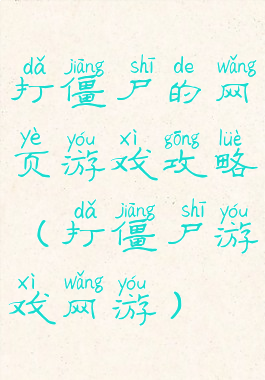 dǎ jiāng shī de wǎng
打僵尸的网
yè yóu xì gōng lüè
页游戏攻略
dǎ jiāng shī yóu
（打僵尸游
xì wǎng yóu
戏网游）